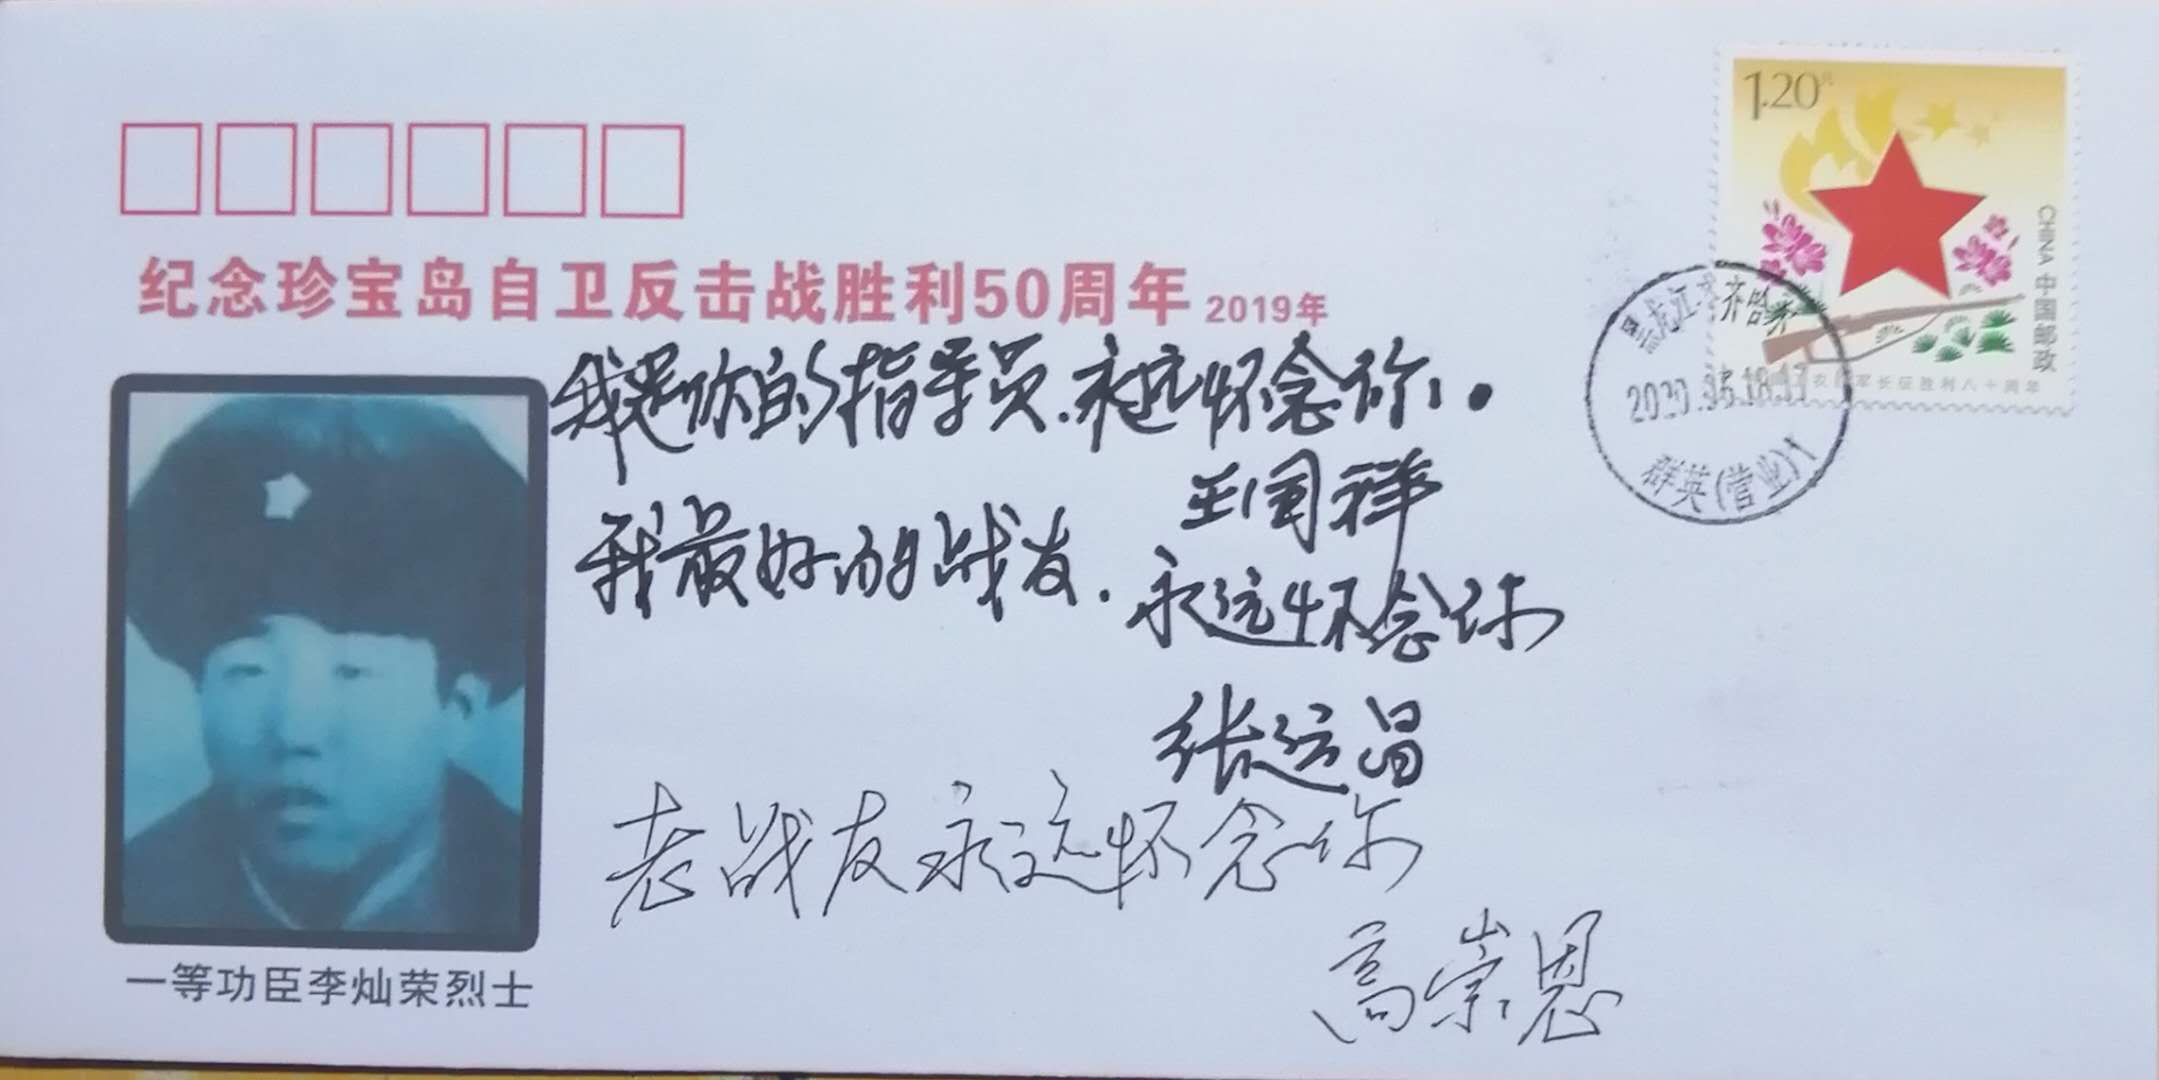 纪念珍宝岛自卫反击战胜利50周年 2019年
1.20元
CHINA 中国邮政
农红军长征胜利八十周年
黑龙江·齐齐哈尔
群英(营业)1
我是你的指导员.永远怀念你.
王国祥
我最好的战友.永远怀念你
张运昌
老战友永远怀念你
高崇恩
一等功臣李灿荣烈士